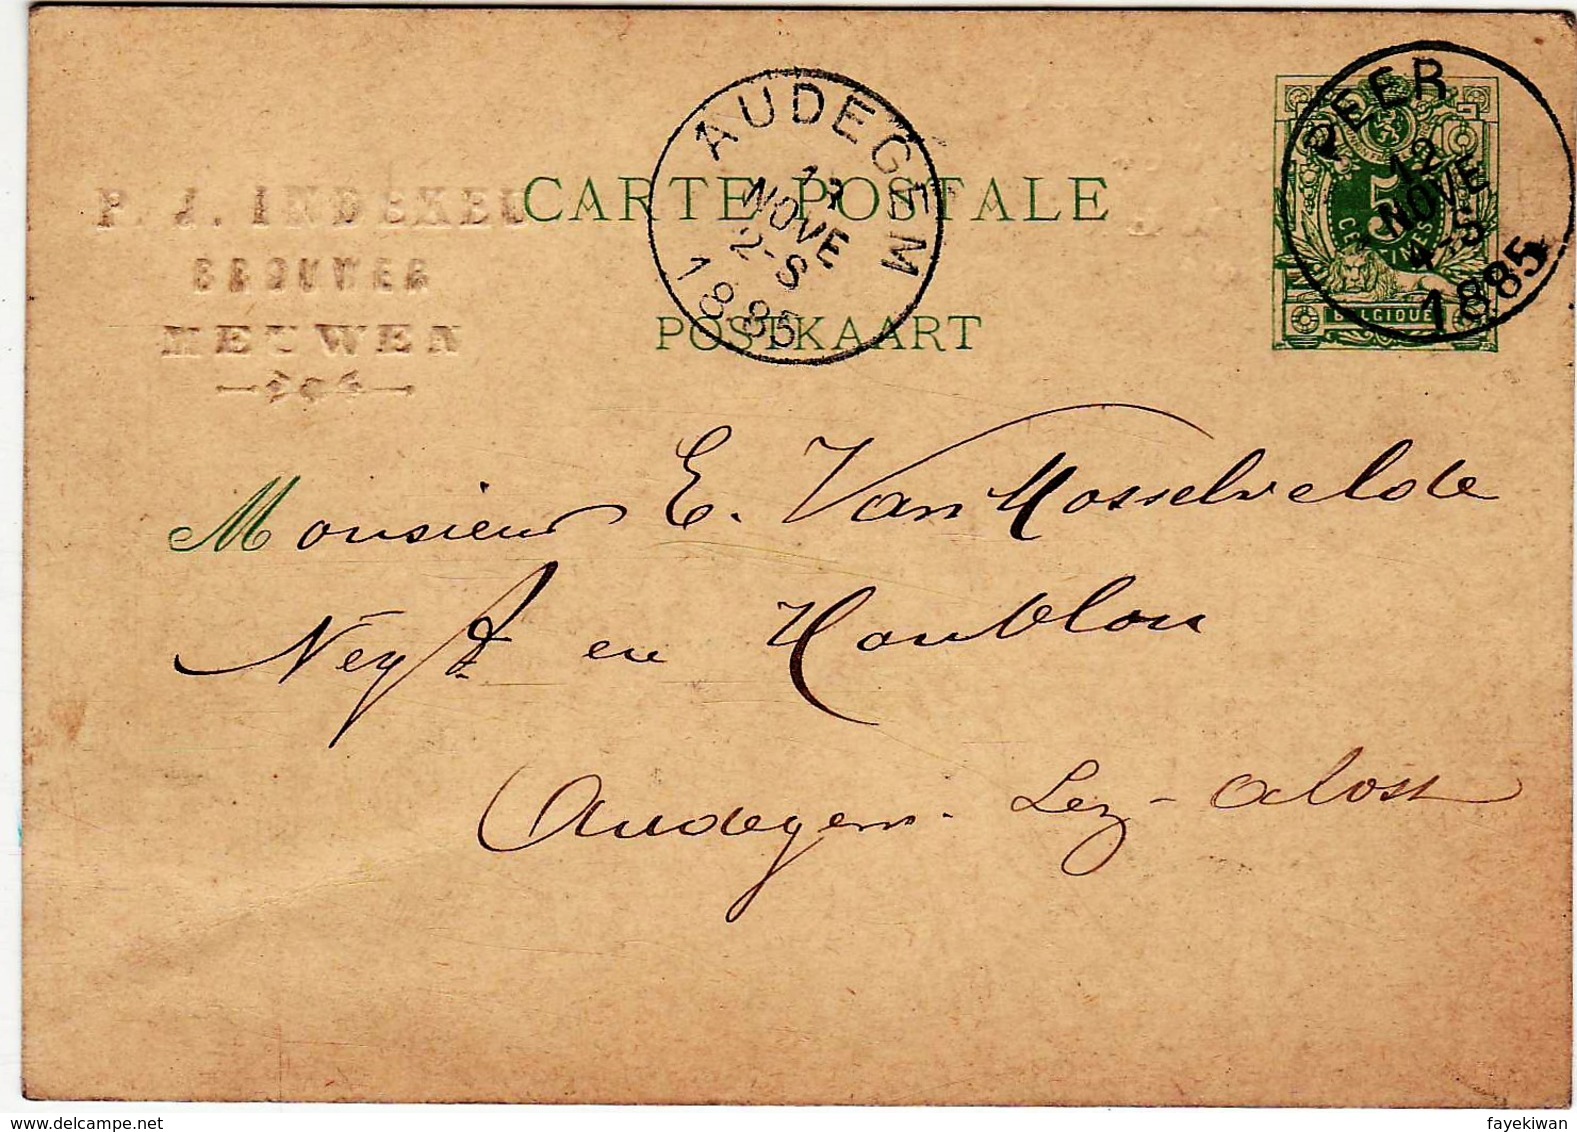 P. J. INDEKEU
BROUWER
MEUWEN
CARTE POSTALE
POSTKAART
AUDEGEM
13
NOVE
2-S
1885
PEER
12
NOVE
4-S
1885
5
CENTIMES
BELGIQUE
Monsieur E. Van Mosselvelde
Negt en Houblon
Audegem - Lez - Alost
www.delcampe.net
fayekiwan